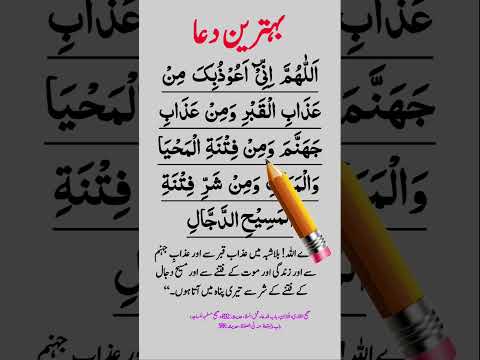 بہترین دعا
اَللّٰهُمَّ اِنِّیْٓ اَعُوْذُبِکَ مِنْ
عَذَابِ الْقَبْرِ وَمِنْ عَذَابِ
جَهَنَّمَ وَمِنْ فِتْنَةِ الْمَحْيَا
وَمِنْ شَرِّ فِتْنَةِ
الْمَسِيْحِ الدَّجَّالِ
اے اللہ! بلاشبہ میں عذاب قبر سے اور عذابِ جہنم
سے اور زندگی اور موت کے فتنے سے اور مسیح دجال
کے فتنے کے شر سے تیری پناہ میں آتا ہوں۔“